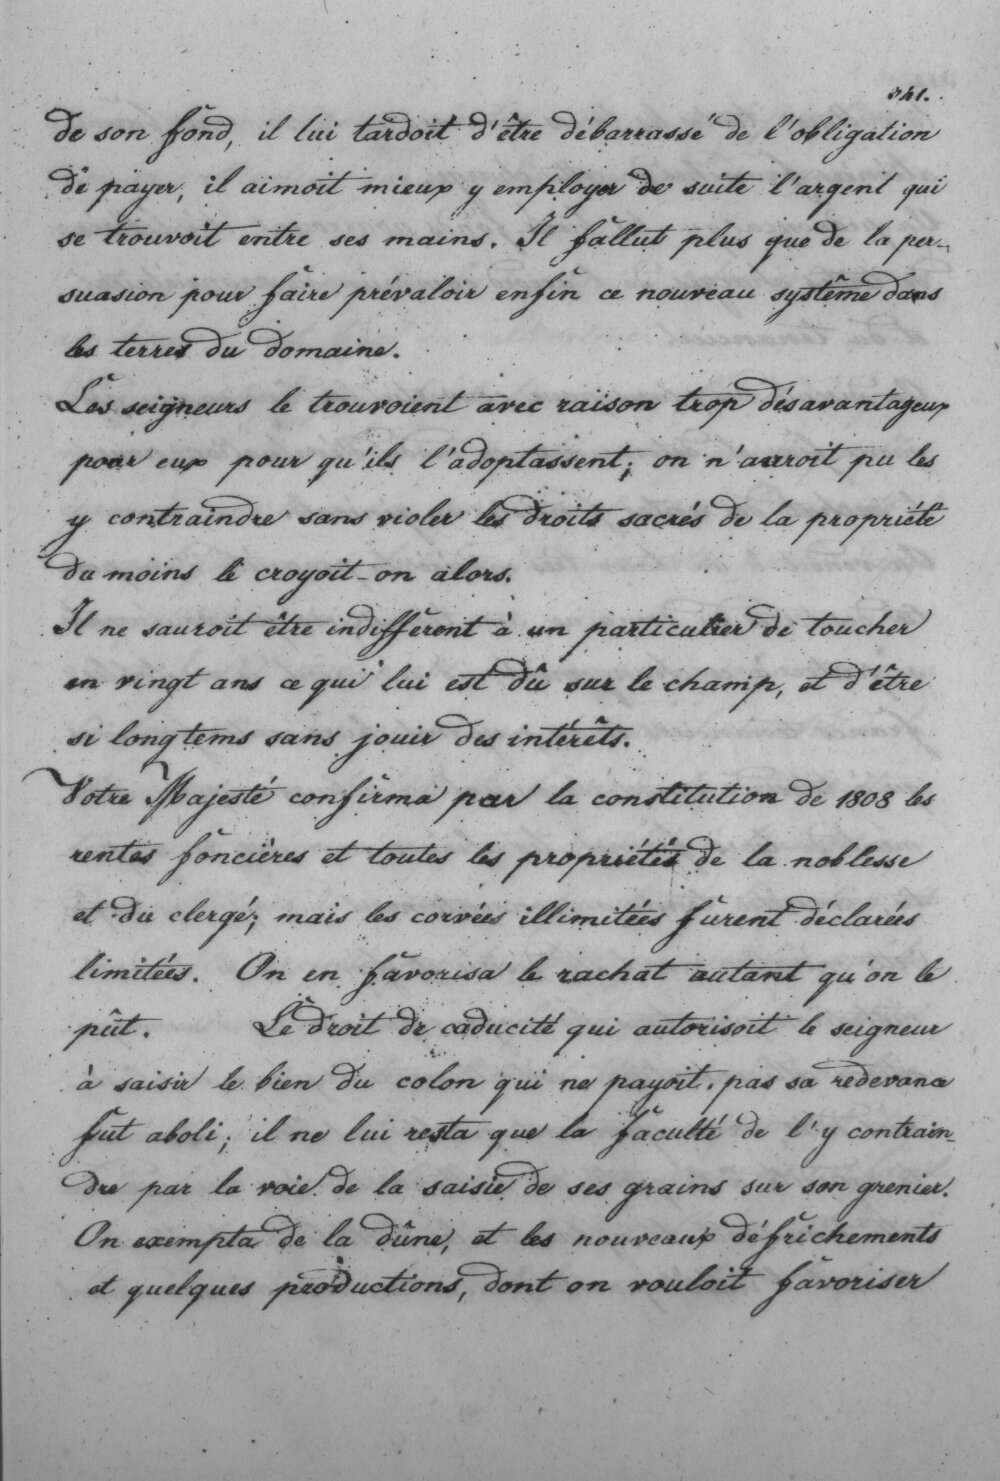 341.
de son fond, il lui tardoit d'être débarrassé de l'obligation
de payer, il aimoit mieux y employer de suite l'argent qui
se trouvoit entre ses mains. Il fallut plus que de la per-
suasion pour faire prévaloir enfin ce nouveau systême dans
les terres du domaine.
Les seigneurs le trouvoient avec raison trop désavantageux
pour eux pour qu'ils l'adoptassent; on n'auroit pu les
y contraindre sans violer les droits sacrés de la propriété
du moins le croyoit-on alors.
Il ne sauroit être indifférent à un particulier de toucher
en vingt ans ce qui lui est dû sur le champ, et d'être
si longtems sans jouir des intérêts.
Votre Majesté confirma par la constitution de 1808 les
rentes foncières et toutes les propriétés de la noblesse
et du clergé; mais les corvées illimitées furent déclarées
limitées. On en favorisa le rachat autant qu'on le
pût. Le droit de caducité qui autorisoit le seigneur
à saisir le bien du colon qui ne payoit pas sa redevance
fut aboli; il ne lui resta que la faculté de l'y contrain-
dre par la voie de la saisie de ses grains sur son grenier.
On exempta de la dûne, et les nouveaux défrichements
et quelques productions, dont on vouloit favoriser